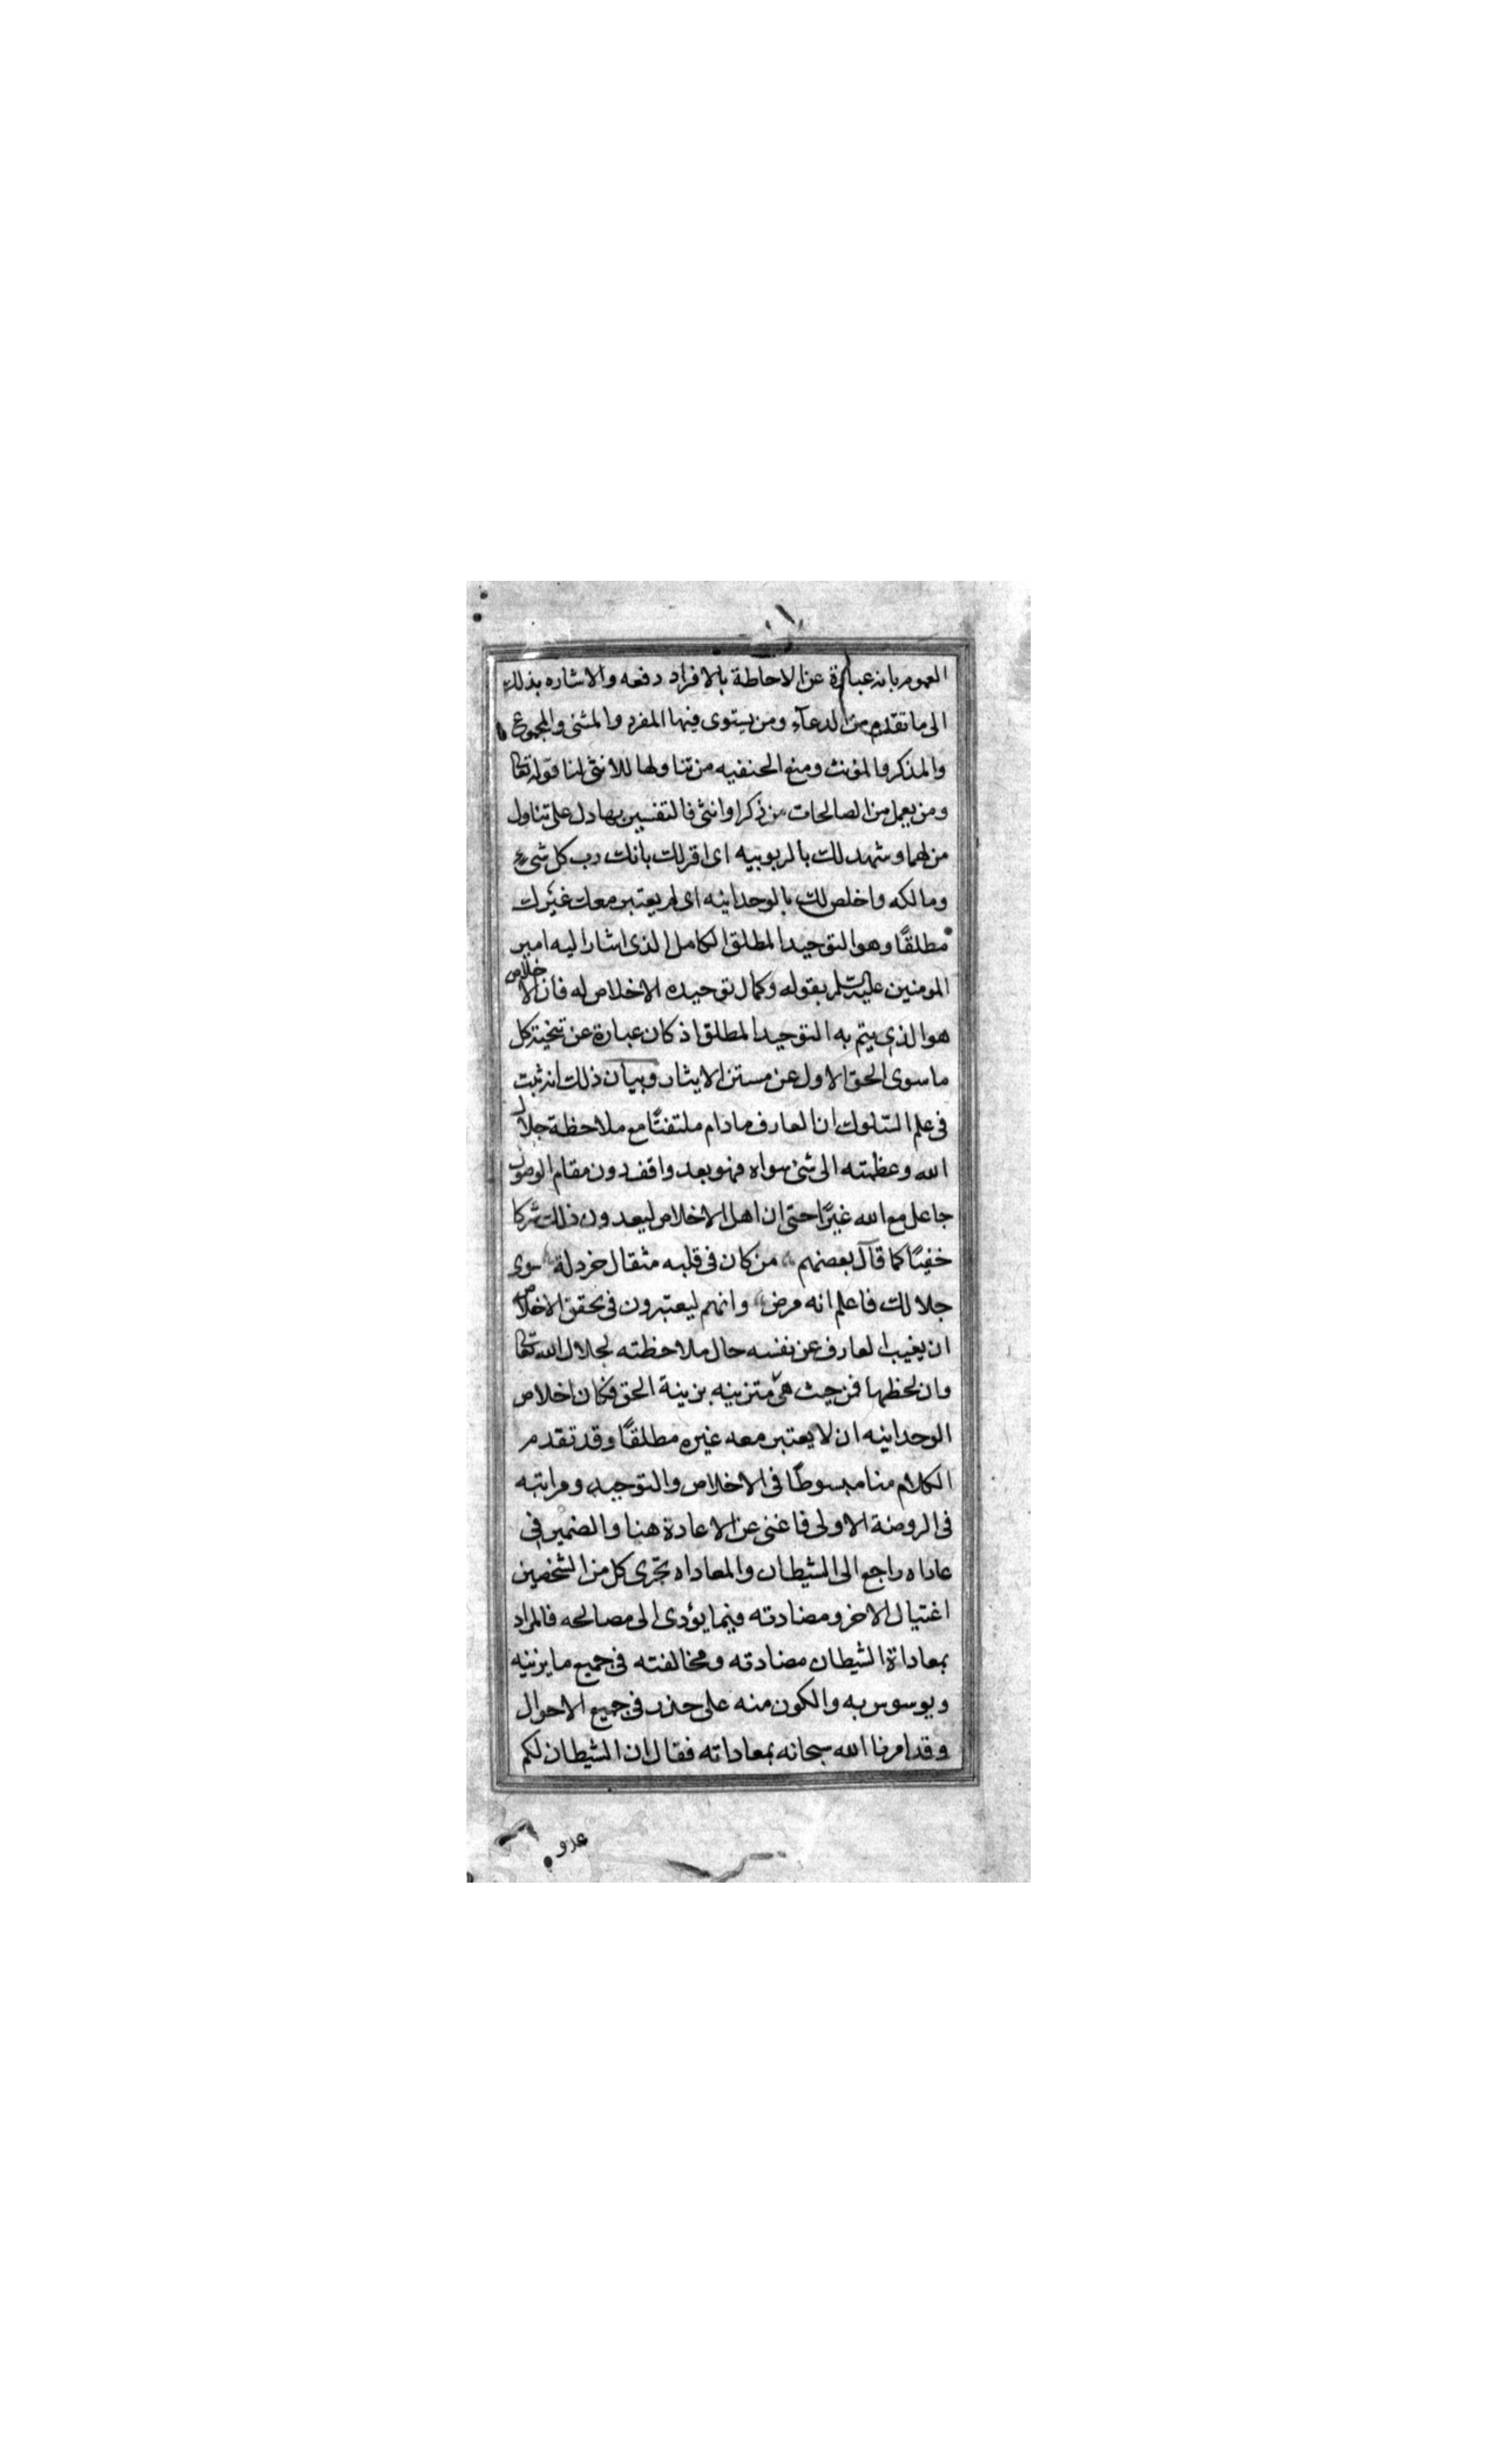 العموم بانه عبارة عن الاحاطة بالافراد دفعه والاشاره بذلك
الى ما تقدم من الدعآء ومن يستوى فيها المفرد والمثنى والمجموع
والمذكر والمؤنث ومنع الحنفيه من تناولها للانثى لنا قوله تعا
ومن يعمل من الصالحات من ذكر او انثى فالتفسير بها دل على تناول
من لهما وشهد لك بالربوبيه اى اقر لك بانك رب كل شىء
ومالكه واخلص لك بالوحدانيه اى لم يعتبر معك غيرك
مطلقًا وهو التوحيد المطلق الكامل الذى اشار اليه امير
المومنين عليه السلم بقوله وكمال توحيده الاخلاص له فان الاخلاص
هو الذى يتم به التوحيد المطلق اذ كان عبارة عن تنحية كل
ما سوى الحق الاول عن مستن الايثار وبيان ذلك انه ثبت
فى علم السلوك ان العارف مادام ملتفتًا مع ملاحظة جلال
الله وعظمته الى شئ سواه فهو بعد واقف دون مقام الوصول
جاعل مع الله غيرًا حتى ان اهل الاخلاص ليعدون ذلك شركا
خفيًا كما قال بعضهم من كان فى قلبه مثقال خردلة سوى
جلالك فاعلم انه مرض وانهم ليعتبرون فى تحقق الاخلاص
ان يغيب العارف عن نفسه حال ملاحظته لجلال الله تعا
وان لحظها فمن حيث هى متزينه بزينة الحق فكان اخلاص
الوحدانيه ان لا يعتبر معه غيره مطلقًا وقد تقدم
الكلام منا مبسوطًا فى الاخلاص والتوحيد ومراتبه
فى الروضة الاولى فاغنى عن الاعادة هنا والضمير فى
عاداه راجع الى الشيطان والمعاداه تحرى كل من الشخصين
اغتيال الاخر ومضادته فيما يؤدى الى مصالحه فالمراد
بمعاداة الشيطان مضادته ومخالفته فى جميع ما يزينه
ويوسوس به والكون منه على حذر فى جميع الاحوال
وقد امرنا الله سبحانه بمعاداته فقال ان الشيطان لكم
عدو